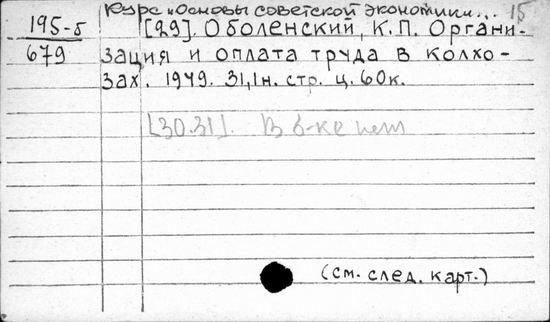 Курс "Основы советской экономики... 15
195-б
679
[29]. Оболенский, К.П. Органи-
зация и оплата труда в колхо-
зах. 1949. 31,1н. стр. ц. 60к.
[30.31]. В б-ке нет
(см. след. карт.)